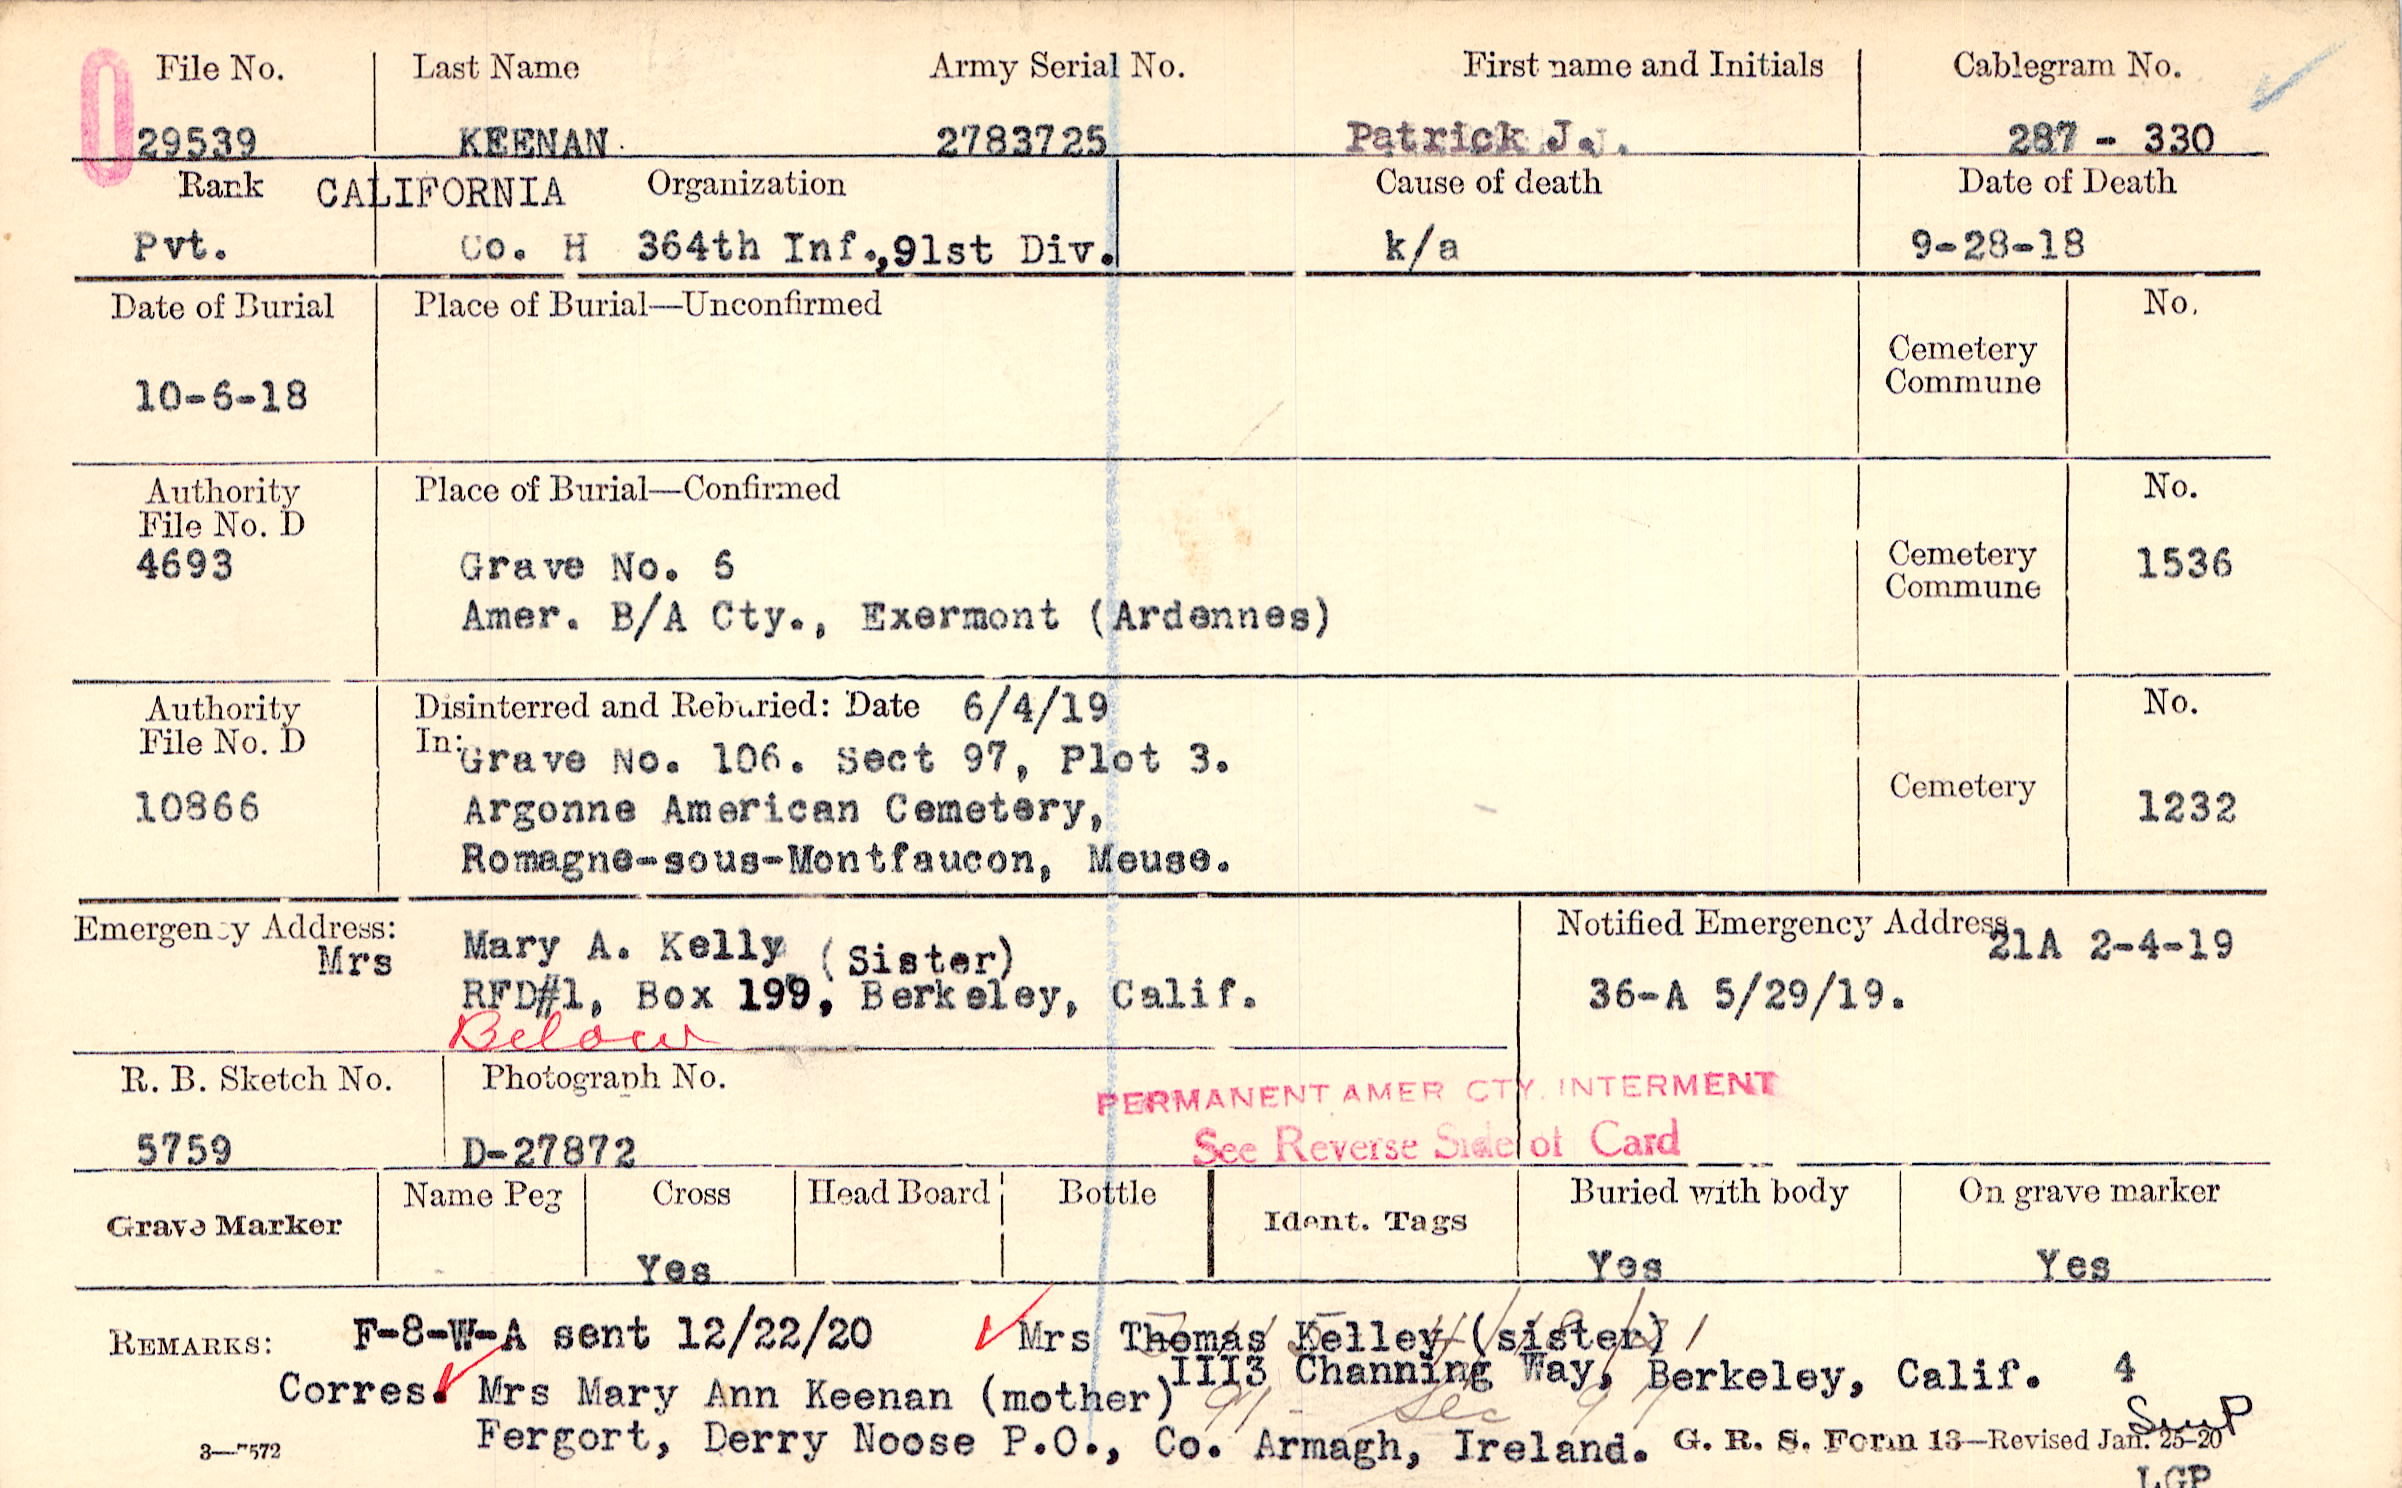 File No. Last Name Army Serial No. First name and Initials Cablegram No.
29539 KEENAN 2783725 Patrick J. 287 - 330
Rank CALIFORNIA Organization Cause of death Date of Death
Pvt. Co. H 364th Inf.,91st Div. k/a 9-28-18
Date of Burial Place of Burial—Unconfirmed No.
Cemetery
Commune
10-6-18
Authority Place of Burial—Confirmed No.
File No. D
4693 Grave No. 6 Cemetery 1536
Commune
Amer. B/A Cty., Exermont (Ardennes)
Authority Disinterred and Reburied: Date 6/4/19 No.
File No. D In: Grave No. 106. Sect 97, Plot 3.
10866 Argonne American Cemetery, Cemetery 1232
Romagne-sous-Montfaucon, Meuse.
Emergency Address: Notified Emergency Address
Mrs Mary A. Kelly (Sister) 21A 2-4-19
RFD#1, Box 199, Berkeley, Calif. 36-A 5/29/19.
Below
R. B. Sketch No. Photograph No.
PERMANENT AMER CTY. INTERMENT
5759 D-27872 See Reverse Side of Card
Grave Marker Name Peg Cross Head Board Bottle Ident. Tags Buried with body On grave marker
Yes Yes Yes
REMARKS: F-8-W-A sent 12/22/20 Mrs Thomas Kelley (sister)
III3 Channing Way, Berkeley, Calif. 4
Corres. Mrs Mary Ann Keenan (mother)
Sec 97
Fergort, Derry Noose P.O., Co. Armagh, Ireland. G. R. S. Form 13—Revised Jan. 25-20
3—7572
LGP